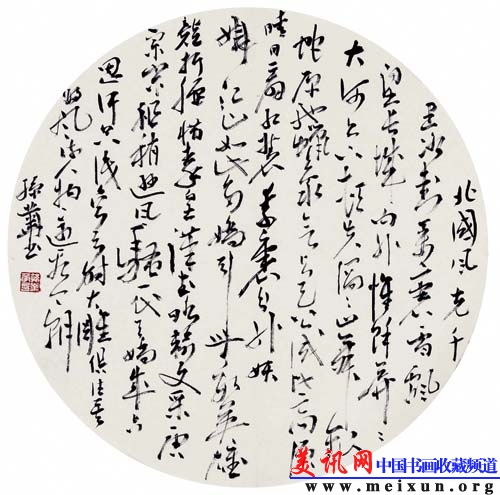 北國風光千
里冰封萬里雪飄
望長城内外惟餘莽々
大河上下頓失滔々山舞銀
蛇原馳蠟象欲與天公試比高須
晴日看紅裝素裹分外妖
嬈江山如此多嬌引無數英雄
競折腰惜秦皇漢武略輸文采唐
宗宋祖稍遜風騷一代天驕成吉
思汗只識彎弓射大雕俱往矣
數風流人物還看今朝
美讯网 中国书画收藏频道
www.meixun.org